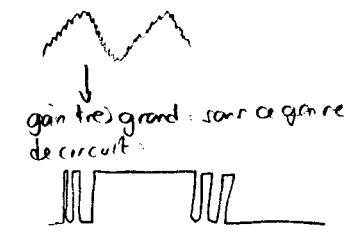 gain très grand : sans ce genre
de circuit :